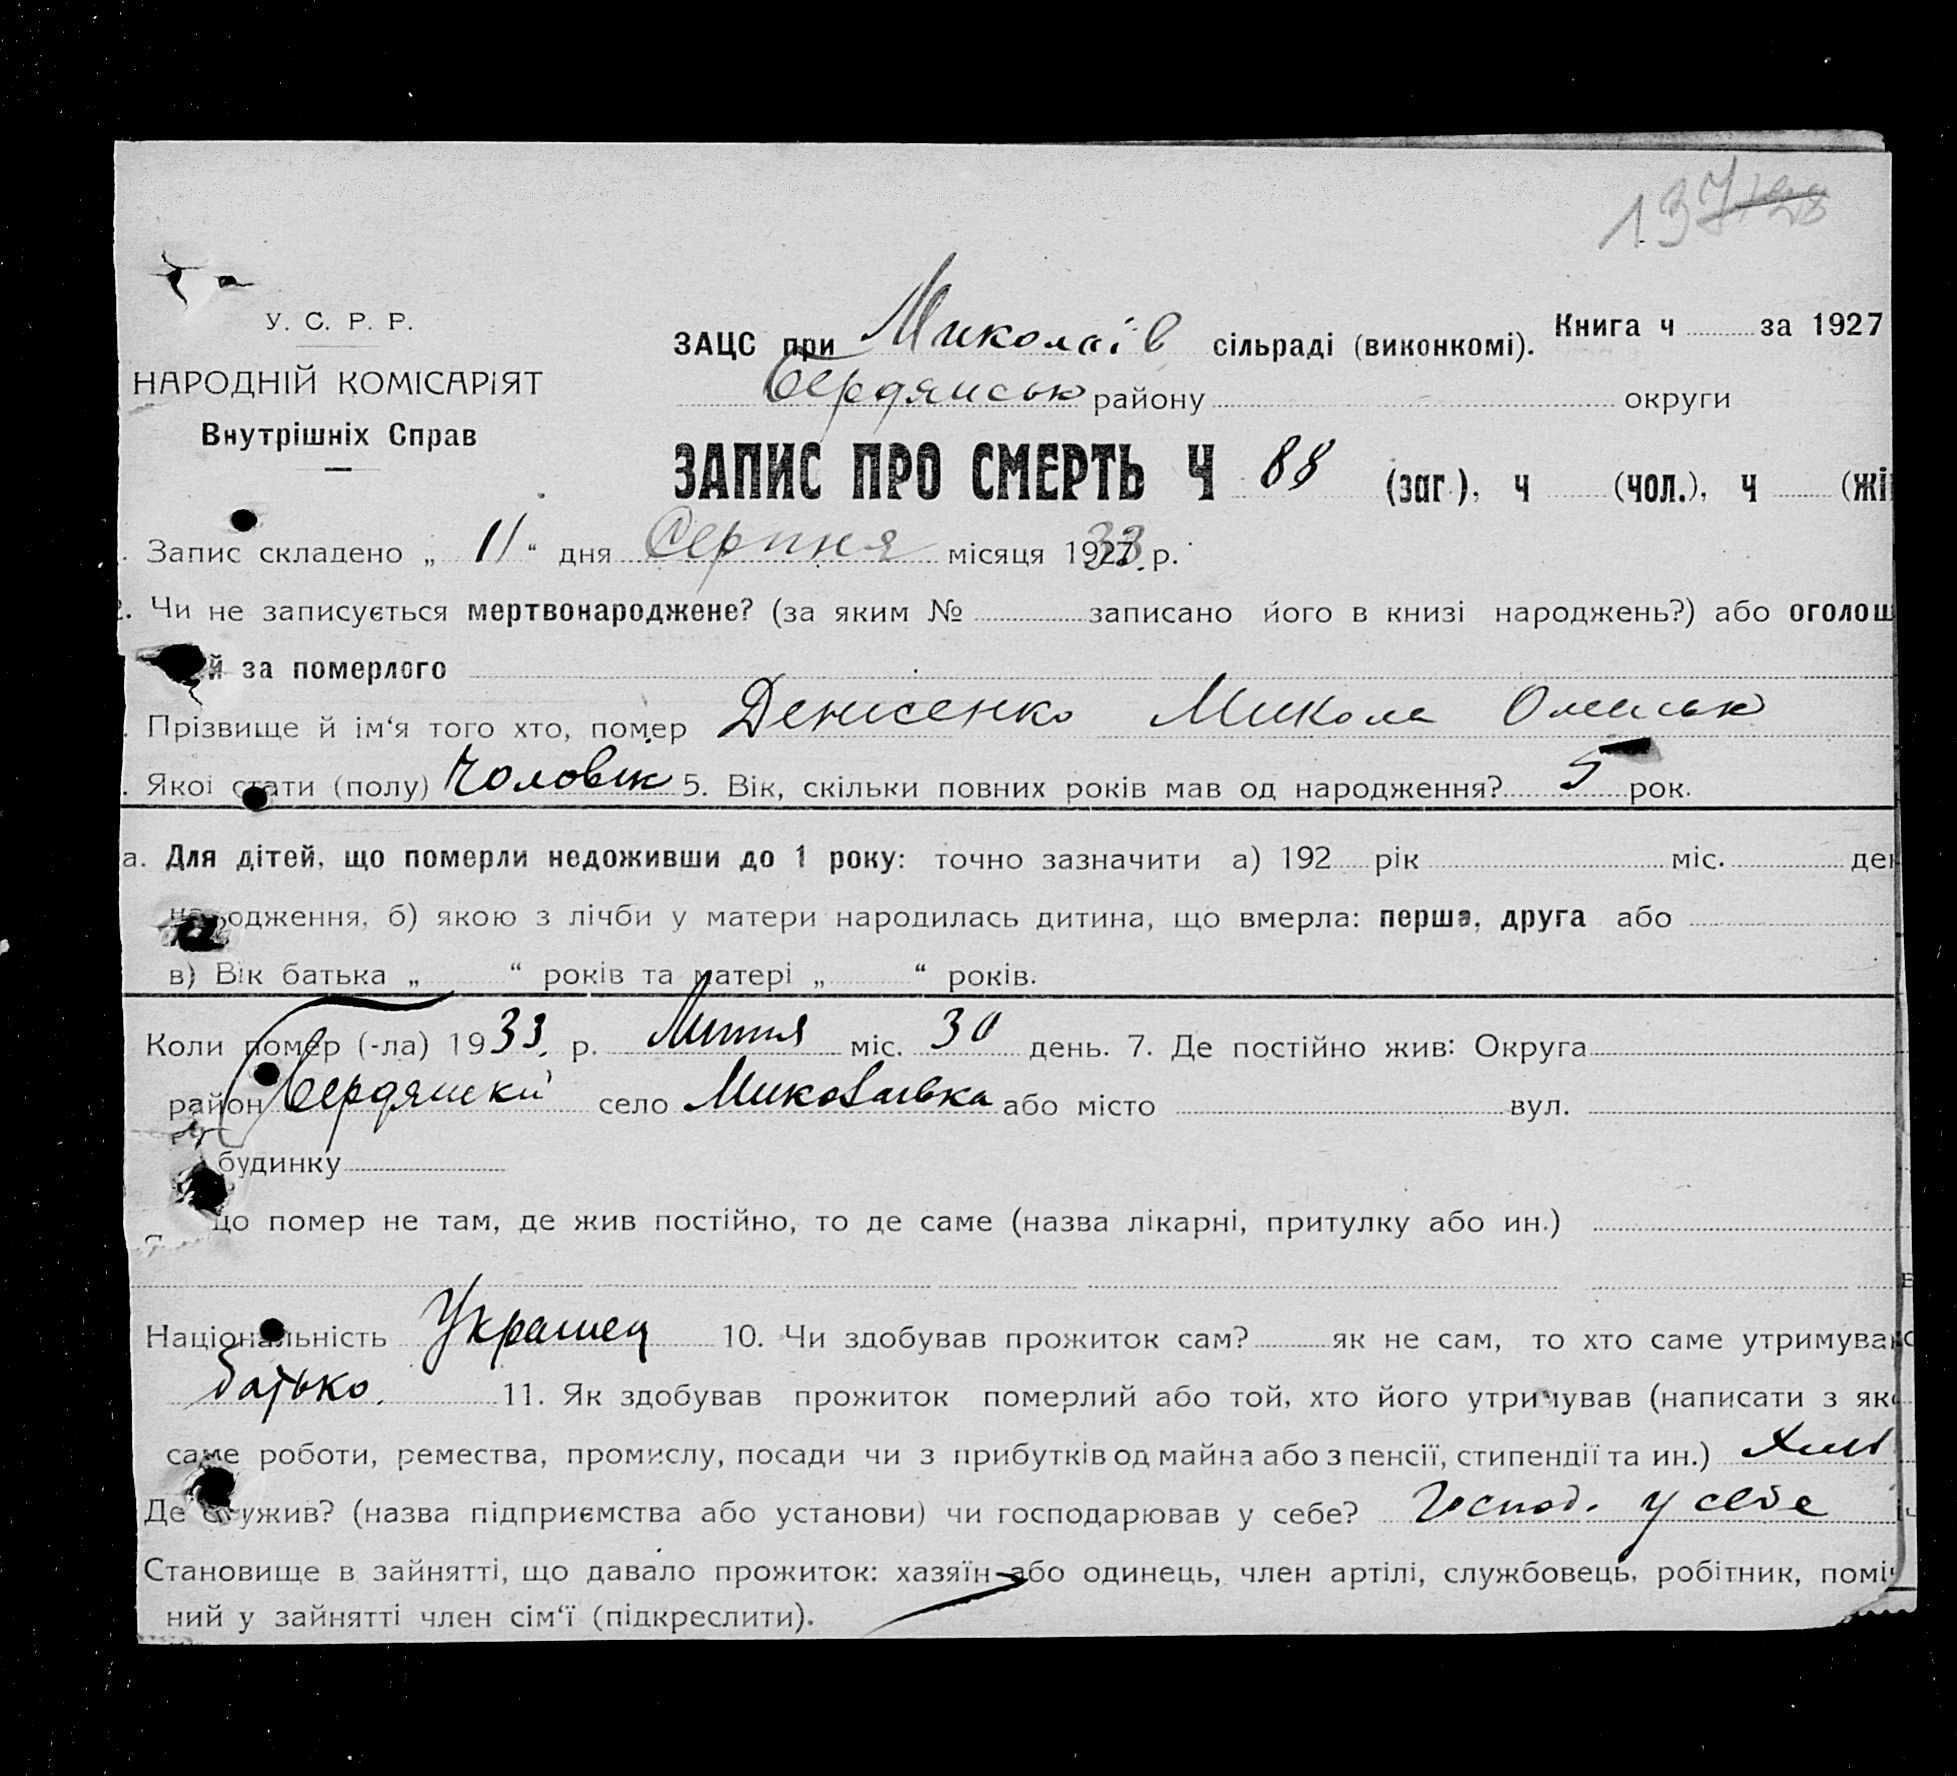 137 128
У. С. Р. Р.
НАРОДНІЙ КОМІСАРІЯТ
Внутрішніх Справ
ЗАЦС при Миколаїв сільраді (виконкомі). Книга ч за 1927
Бердянськ району округи
ЗАПИС ПРО СМЕРТЬ Ч 88 (заг.), ч (чол.), ч (жі
Запис складено „ 11 “ дня Серпня місяця 1933 р.
2. Чи не записується мертвонароджене? (за яким № записано його в книзі народжень?) або оголош
й за померлого
Прізвище й ім‘я того хто, помер Денисенко Микола Омельк
Якої стати (полу) Чоловік 5. Вік, скільки повних років мав од народження? 5 рок.
а. Для дітей, що померли недоживши до 1 року: точно зазначити а) 192 рік міс. ден
народження, б) якою з лічби у матери народилась дитина, що вмерла: перша, друга або
в) Вік батька „ “ років та матері „ “ років.
Коли помер (-ла) 1933. р. Липня міс. 30 день. 7. Де постійно жив: Округа
район Бердянский село Миколаївка або місто вул.
будинку
що помер не там, де жив постійно, то де саме (назва лікарні, притулку або ин.)
Національність Українец 10. Чи здобував прожиток сам? як не сам, то хто саме утримува
батько. 11. Як здобував прожиток померлий або той, хто його утримував (написати з як
саме роботи, ремества, промислу, посади чи з прибутків од майна або з пенсії, стипендії та ин.)
Де служив? (назва підприємства або установи) чи господарював у себе? Господ. у себе
Становище в зайнятті, що давало прожиток: хазяїн або одинець, член артілі, службовець, робітник, поміч
ний у зайнятті член сім‘ї (підкреслити).